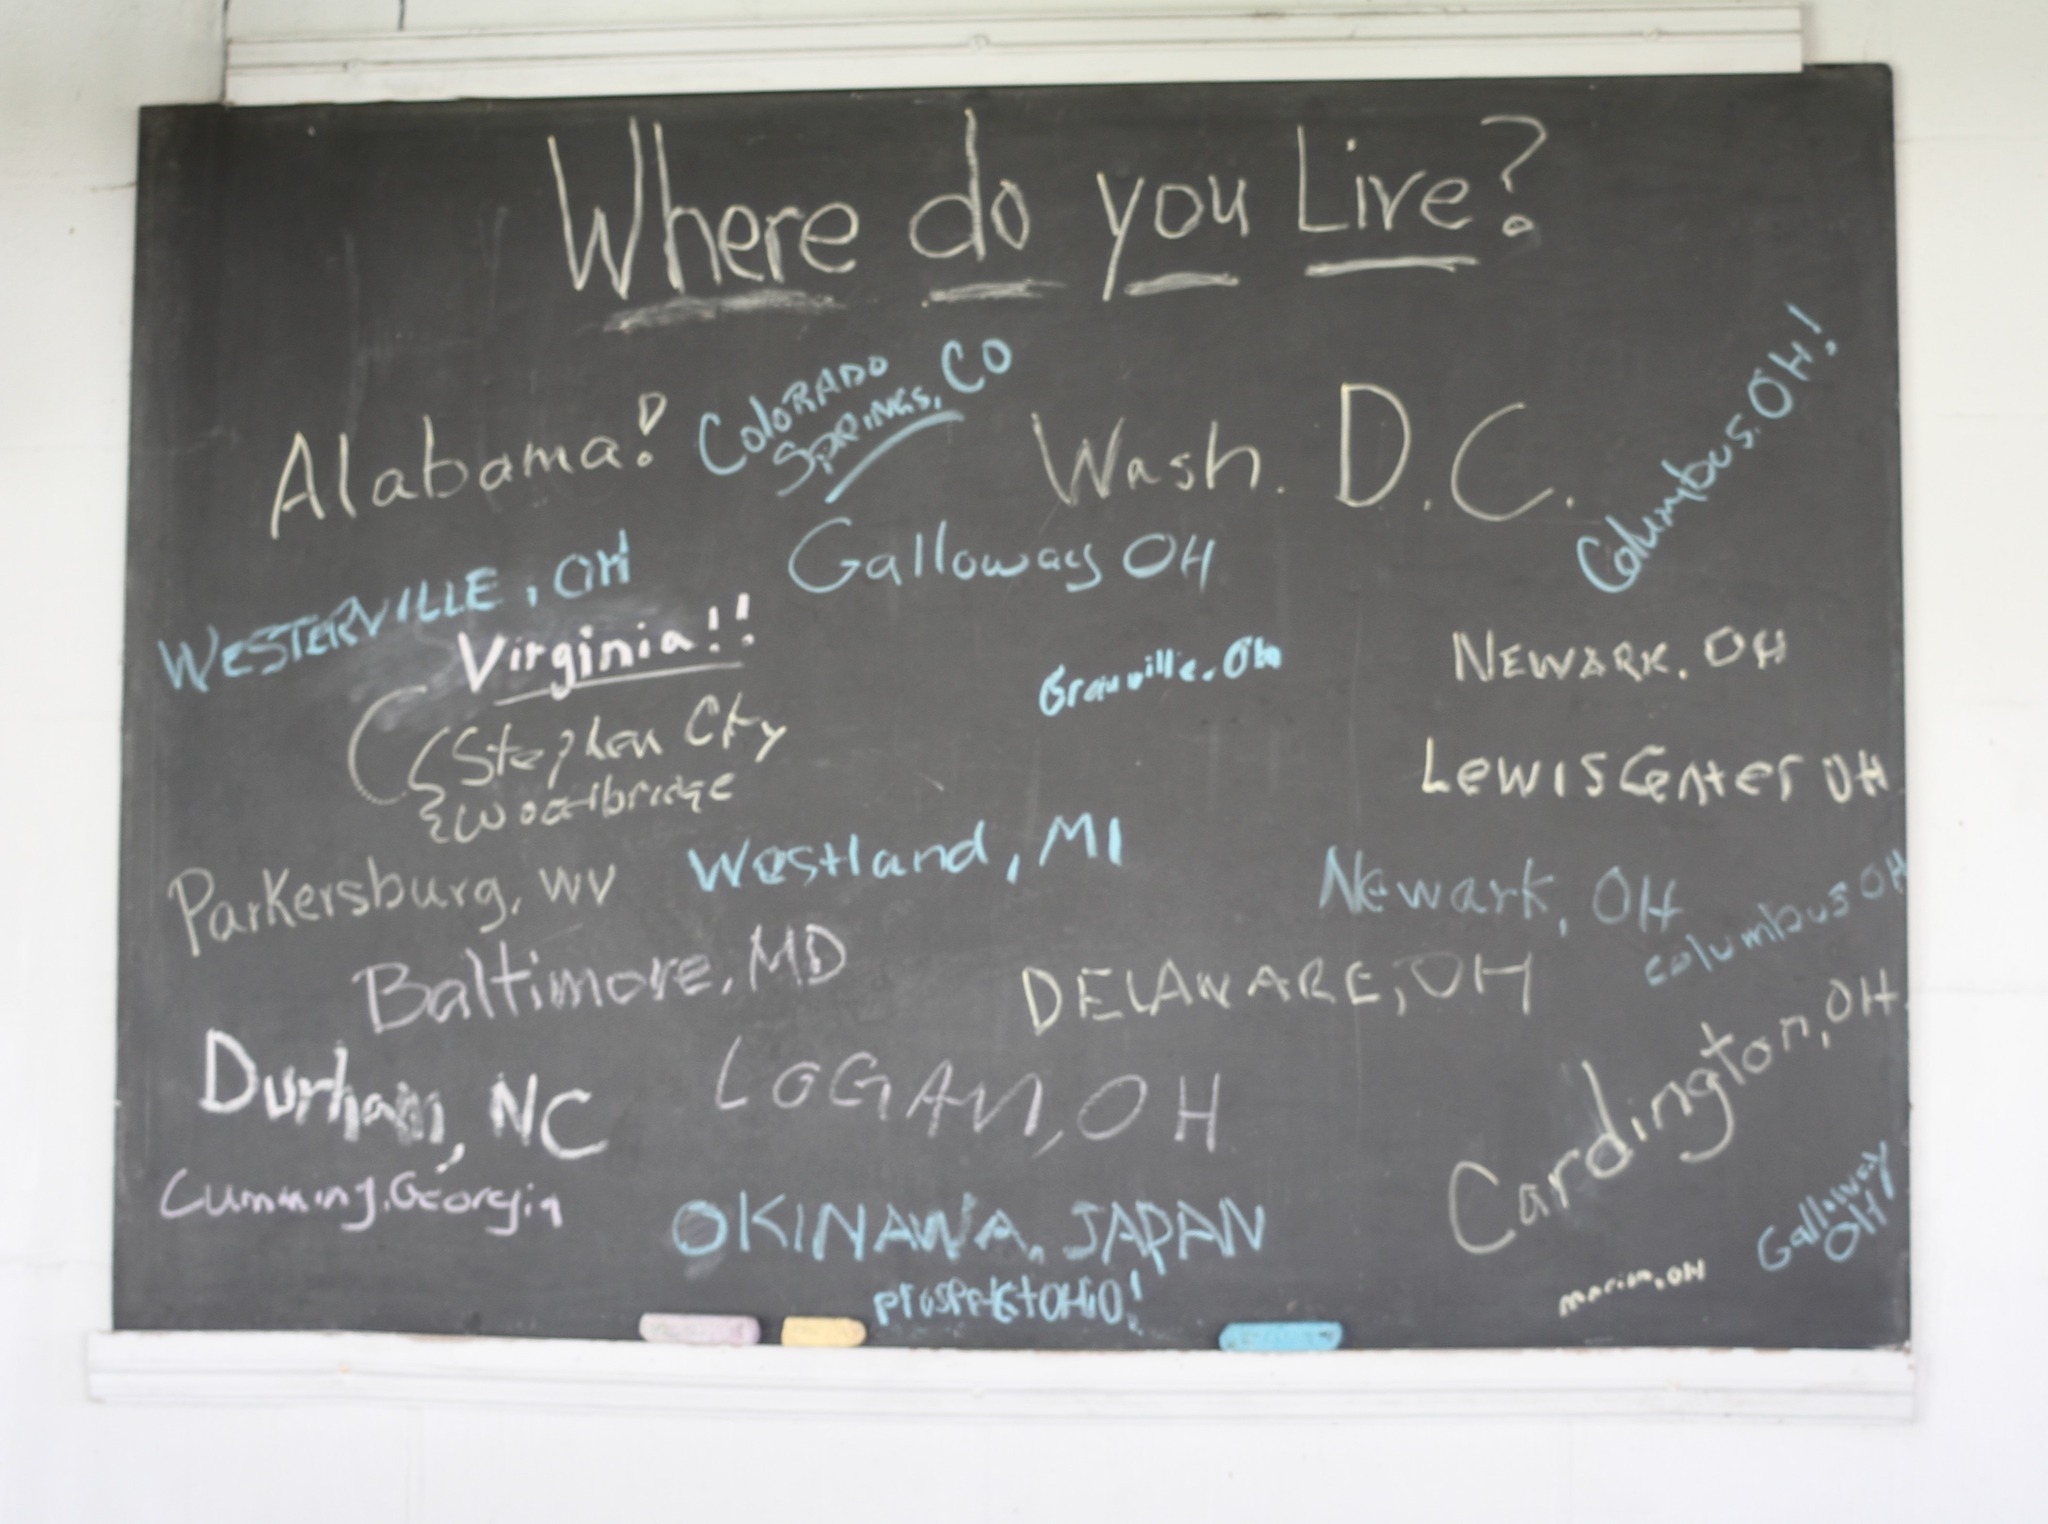 Where do you Live?
Alabama!
COLORADO
SPRINGS, CO
Wash. D.C.
Columbus, OH!
WESTERVILLE, OH
Galloway OH
Virginia!!
Stephen City
& Woodbridge
Granville, Oh
NEWARK, OH
Lewis Center OH
Parkersburg, WV
Westland, MI
Newark, OH
columbus OH
Baltimore, MD
DELAWARE, OH
Cardington, OH.
Durham, NC
LOGAN, OH
Cumming, Georgia
OKINAWA, JAPAN
Galloway
OH!
marion, OH
prospekt OHIO!